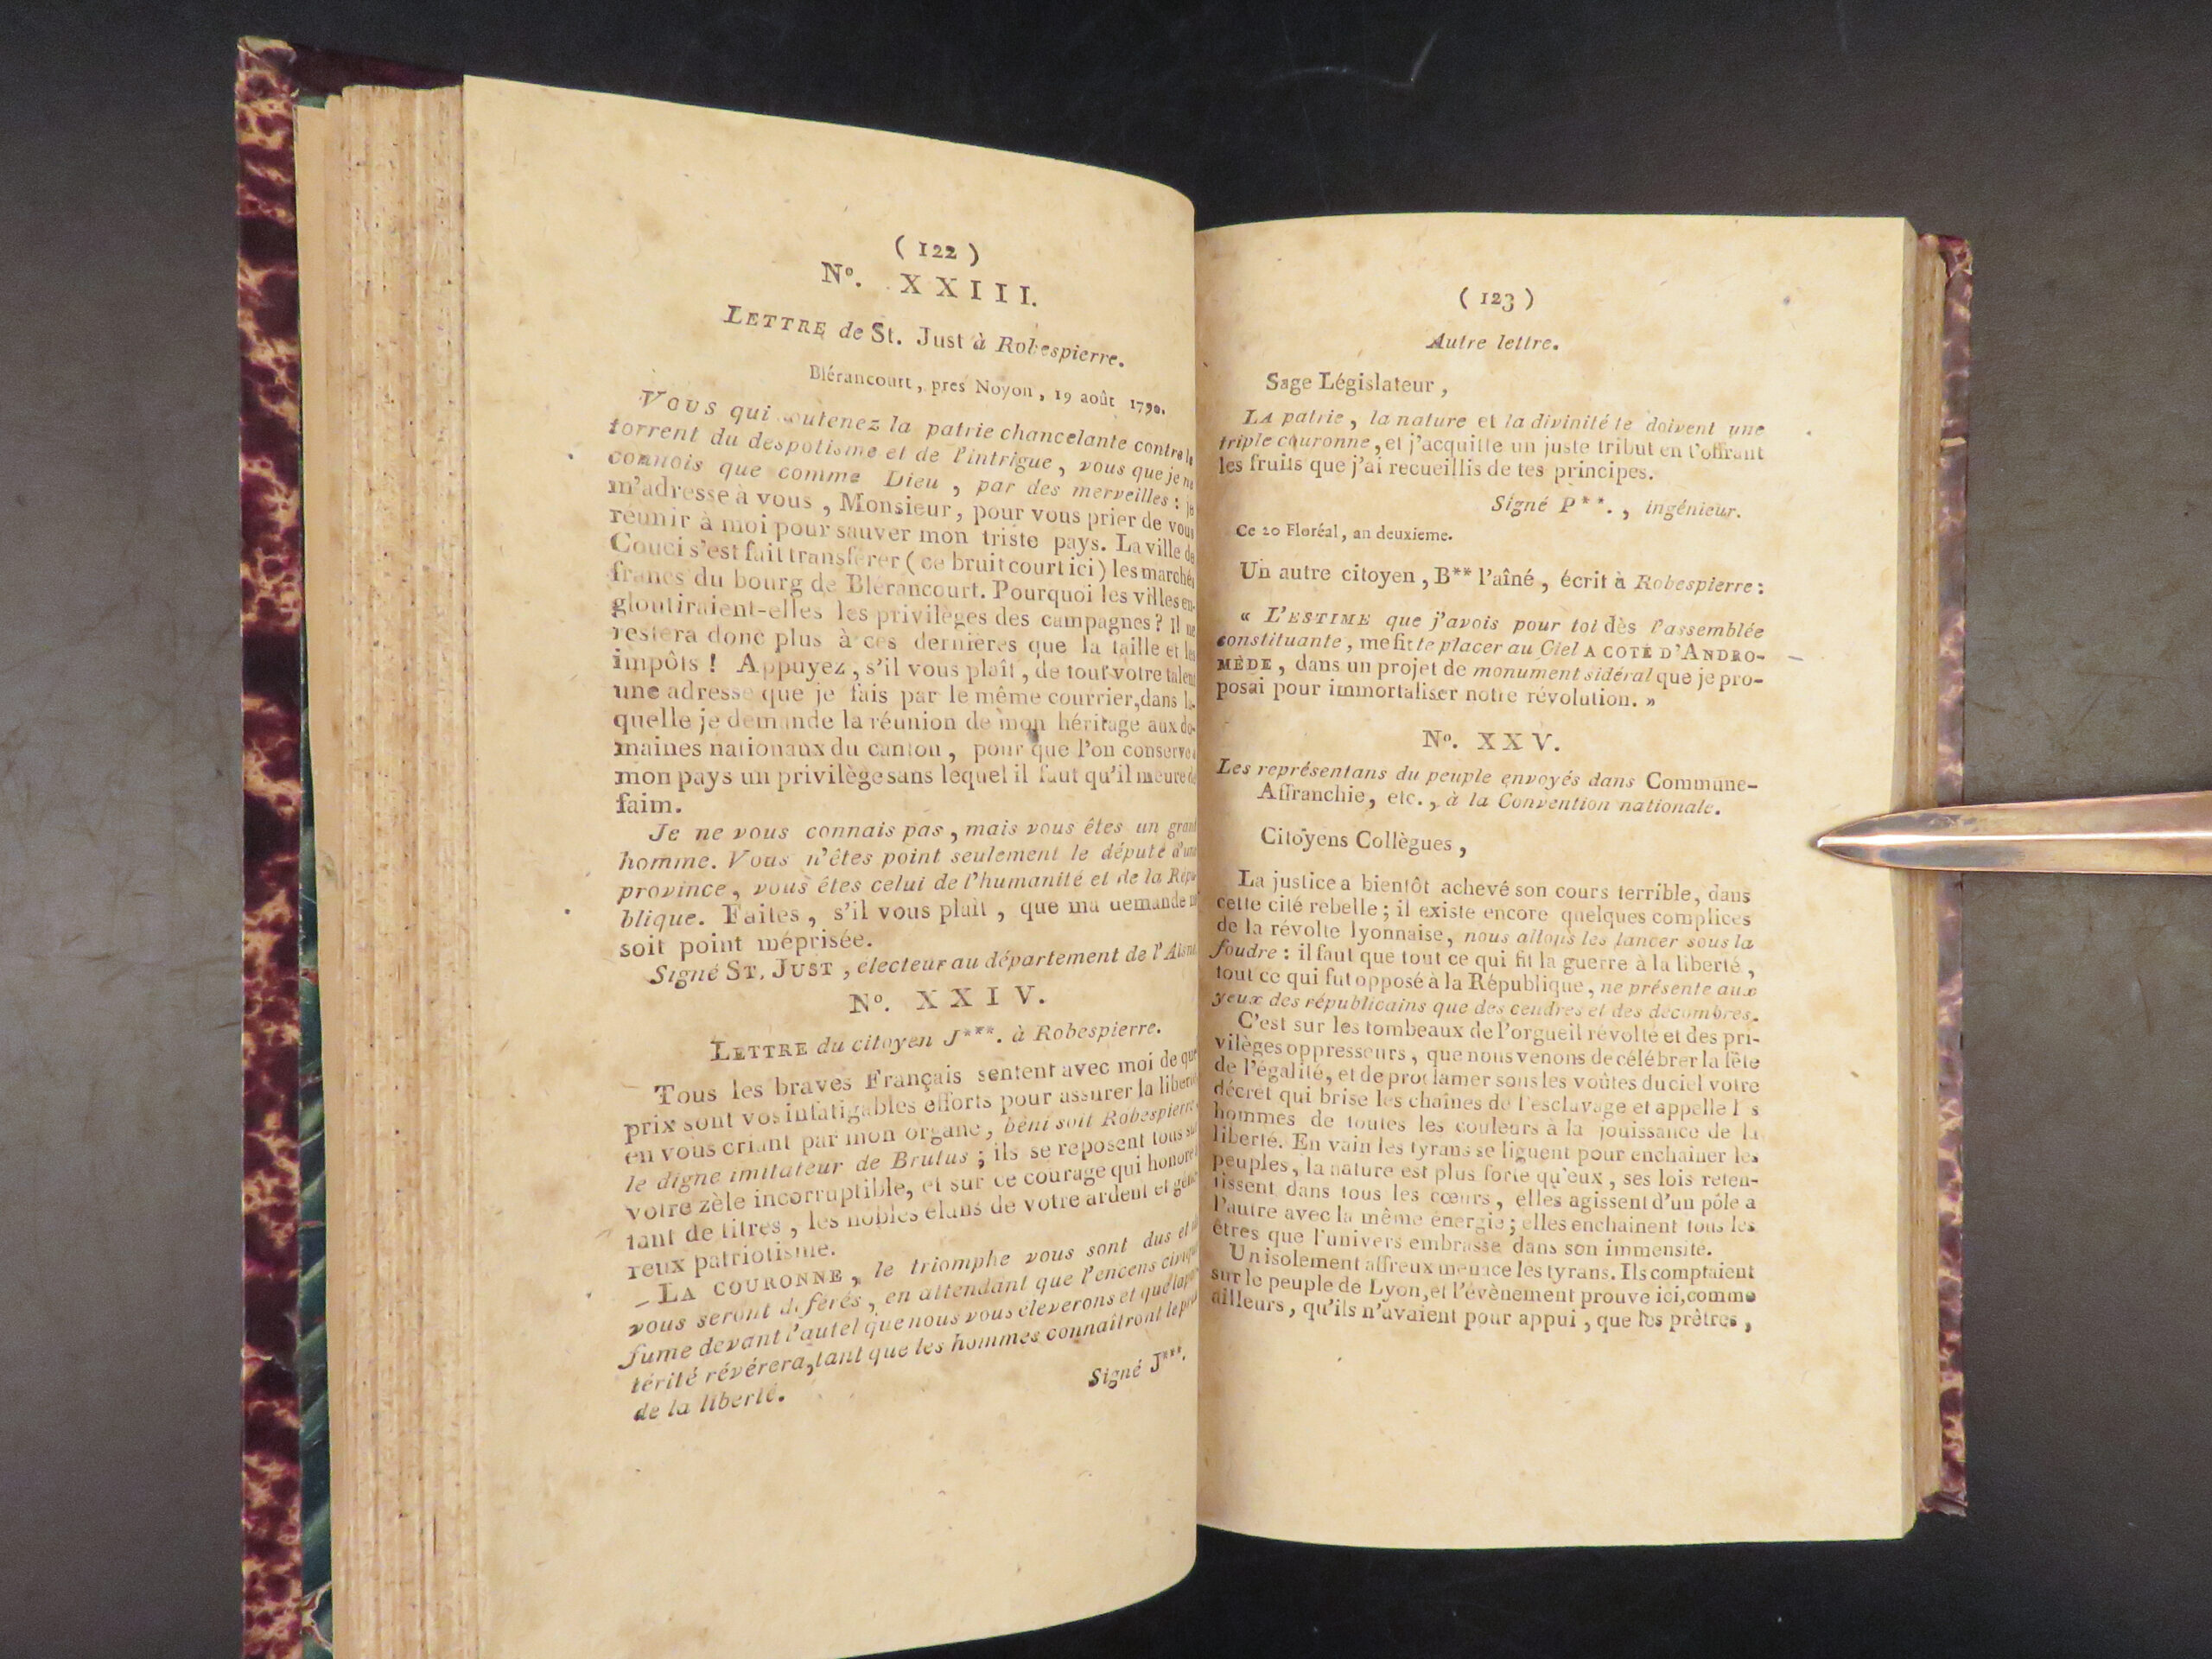 ( 122 )
No. XXIII.
LETTRE de St. Just à Robespierre.
Blérancourt, pres Noyon, 19 août 1790.
VOUS qui soutenez la patrie chancelante contre le
torrent du despotisme et de l'intrigue, vous que je ne
connois que comme Dieu, par des merveilles : je
m'adresse à vous, Monsieur, pour vous prier de vous
réunir à moi pour sauver mon triste pays. La ville de
Couci s'est fait transférer (ce bruit court ici) les marchés
francs du bourg de Blérancourt. Pourquoi les villes en-
gloutiraient-elles les privilèges des campagnes ? Il ne
restera donc plus à ces dernières que la taille et les
impôts ! Appuyez, s'il vous plaît, de tout votre talent
une adresse que je fais par le même courrier, dans la-
quelle je demande la réunion de mon héritage aux do-
maines nationaux du canton, pour que l'on conserve à
mon pays un privilège sans lequel il faut qu'il meure de
faim.
Je ne vous connais pas, mais vous êtes un grand
homme. Vous n'êtes point seulement le député d'une
province, vous êtes celui de l'humanité et de la Répu-
blique. Faites, s'il vous plaît, que ma demande ne
soit point méprisée.
Signé ST. JUST, électeur au département de l'Aisne.
No. XXIV.
LETTRE du citoyen J***. à Robespierre.
Tous les braves Français sentent avec moi de quel
prix sont vos infatigables efforts pour assurer la liberté
en vous criant par mon organe, béni soit Robespierre
le digne imitateur de Brutus ; ils se reposent tous sur
votre zèle incorruptible, et sur ce courage qui honore
tant de titres, les nobles élans de votre ardent et géné-
reux patriotisme.
– LA COURONNE, le triomphe vous sont dus et
vous seront déférés, en attendant que l'encens civique
fume devant l'autel que nous vous éleverons et que la pos-
térité révérera, tant que les hommes connaîtront le prix
de la liberté.
Signé J***.
( 123 )
Autre lettre.
Sage Législateur,
LA patrie, la nature et la divinité te doivent une
triple couronne, et j'acquitte un juste tribut en t'offrant
les fruits que j'ai recueillis de tes principes.
Signé P**., ingénieur.
Ce 20 Floréal, an deuxieme.
Un autre citoyen, B** l'aîné, écrit à Robespierre :
« L'ESTIME que j'avois pour toi dès l'assemblée
constituante, me fit te placer au Ciel A COTÉ D'ANDRO-
MÈDE, dans un projet de monument sidéral que je pro-
posai pour immortaliser notre révolution. »
No. XXV.
Les représentans du peuple envoyés dans Commune-
Affranchie, etc., à la Convention nationale.
Citoyens Collègues,
La justice a bientôt achevé son cours terrible, dans
cette cité rebelle ; il existe encore quelques complices
de la révolte lyonnaise, nous allons les lancer sous la
foudre : il faut que tout ce qui fit la guerre à la liberté,
tout ce qui fut opposé à la République, ne présente aux
yeux des républicains que des cendres et des décombres.
C'est sur les tombeaux de l'orgueil révolté et des pri-
vilèges oppresseurs, que nous venons de célébrer la fête
de l'égalité, et de proclamer sous les voûtes du ciel votre
décret qui brise les chaînes de l'esclavage et appelle les
hommes de toutes les couleurs à la jouissance de la
liberté. En vain les tyrans se liguent pour enchainer les
peuples, la nature est plus forte qu'eux, ses lois reten-
tissent dans tous les cœurs, elles agissent d'un pôle a
l'autre avec la même énergie ; elles enchainent tous les
êtres que l'univers embrasse dans son immensité.
Un isolement affreux menace les tyrans. Ils comptaient
sur le peuple de Lyon, et l'évènement prouve ici, comme
ailleurs, qu'ils n'avaient pour appui, que les prêtres,